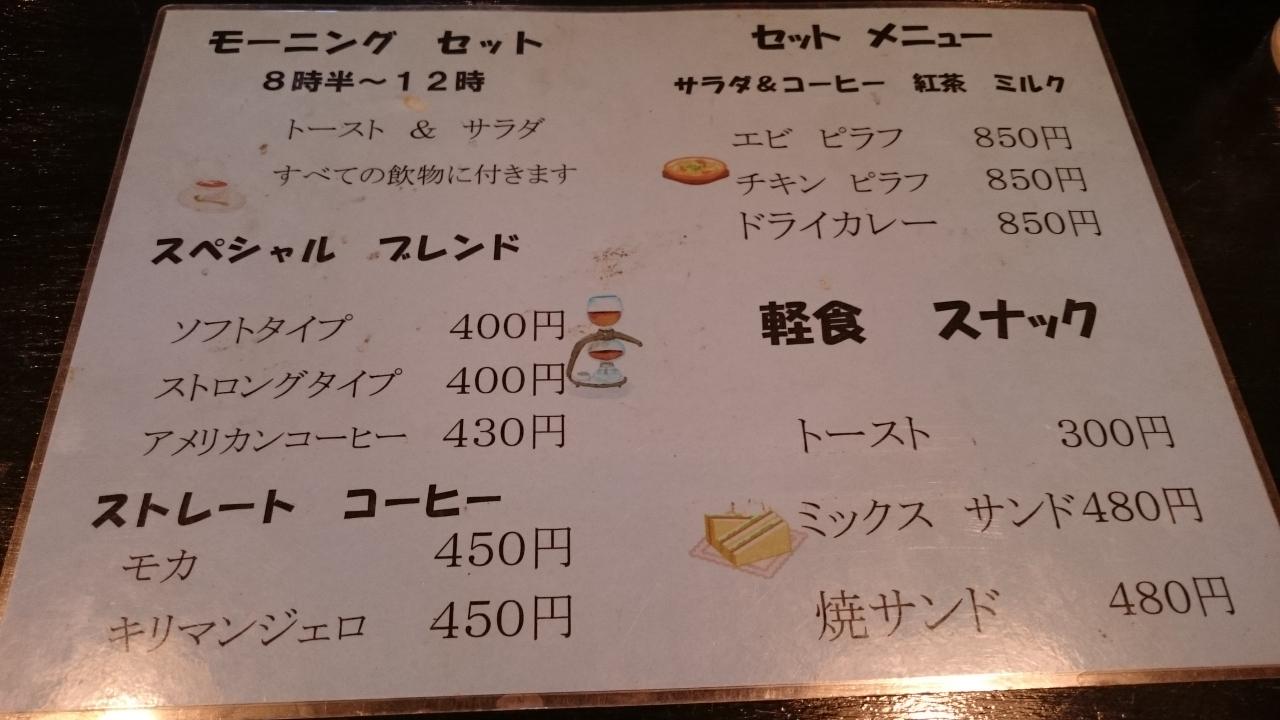 モーニング セット
８時半～１２時
トースト ＆ サラダ
すべての飲物に付きます
スペシャル ブレンド
ソフトタイプ 400円
ストロングタイプ 400円
アメリカンコーヒー 430円
ストレート コーヒー
モカ 450円
キリマンジェロ 450円
セット メニュー
サラダ＆コーヒー 紅茶 ミルク
エビ ピラフ 850円
チキン ピラフ 850円
ドライカレー 850円
軽食 スナック
トースト 300円
ミックス サンド480円
焼サンド 480円